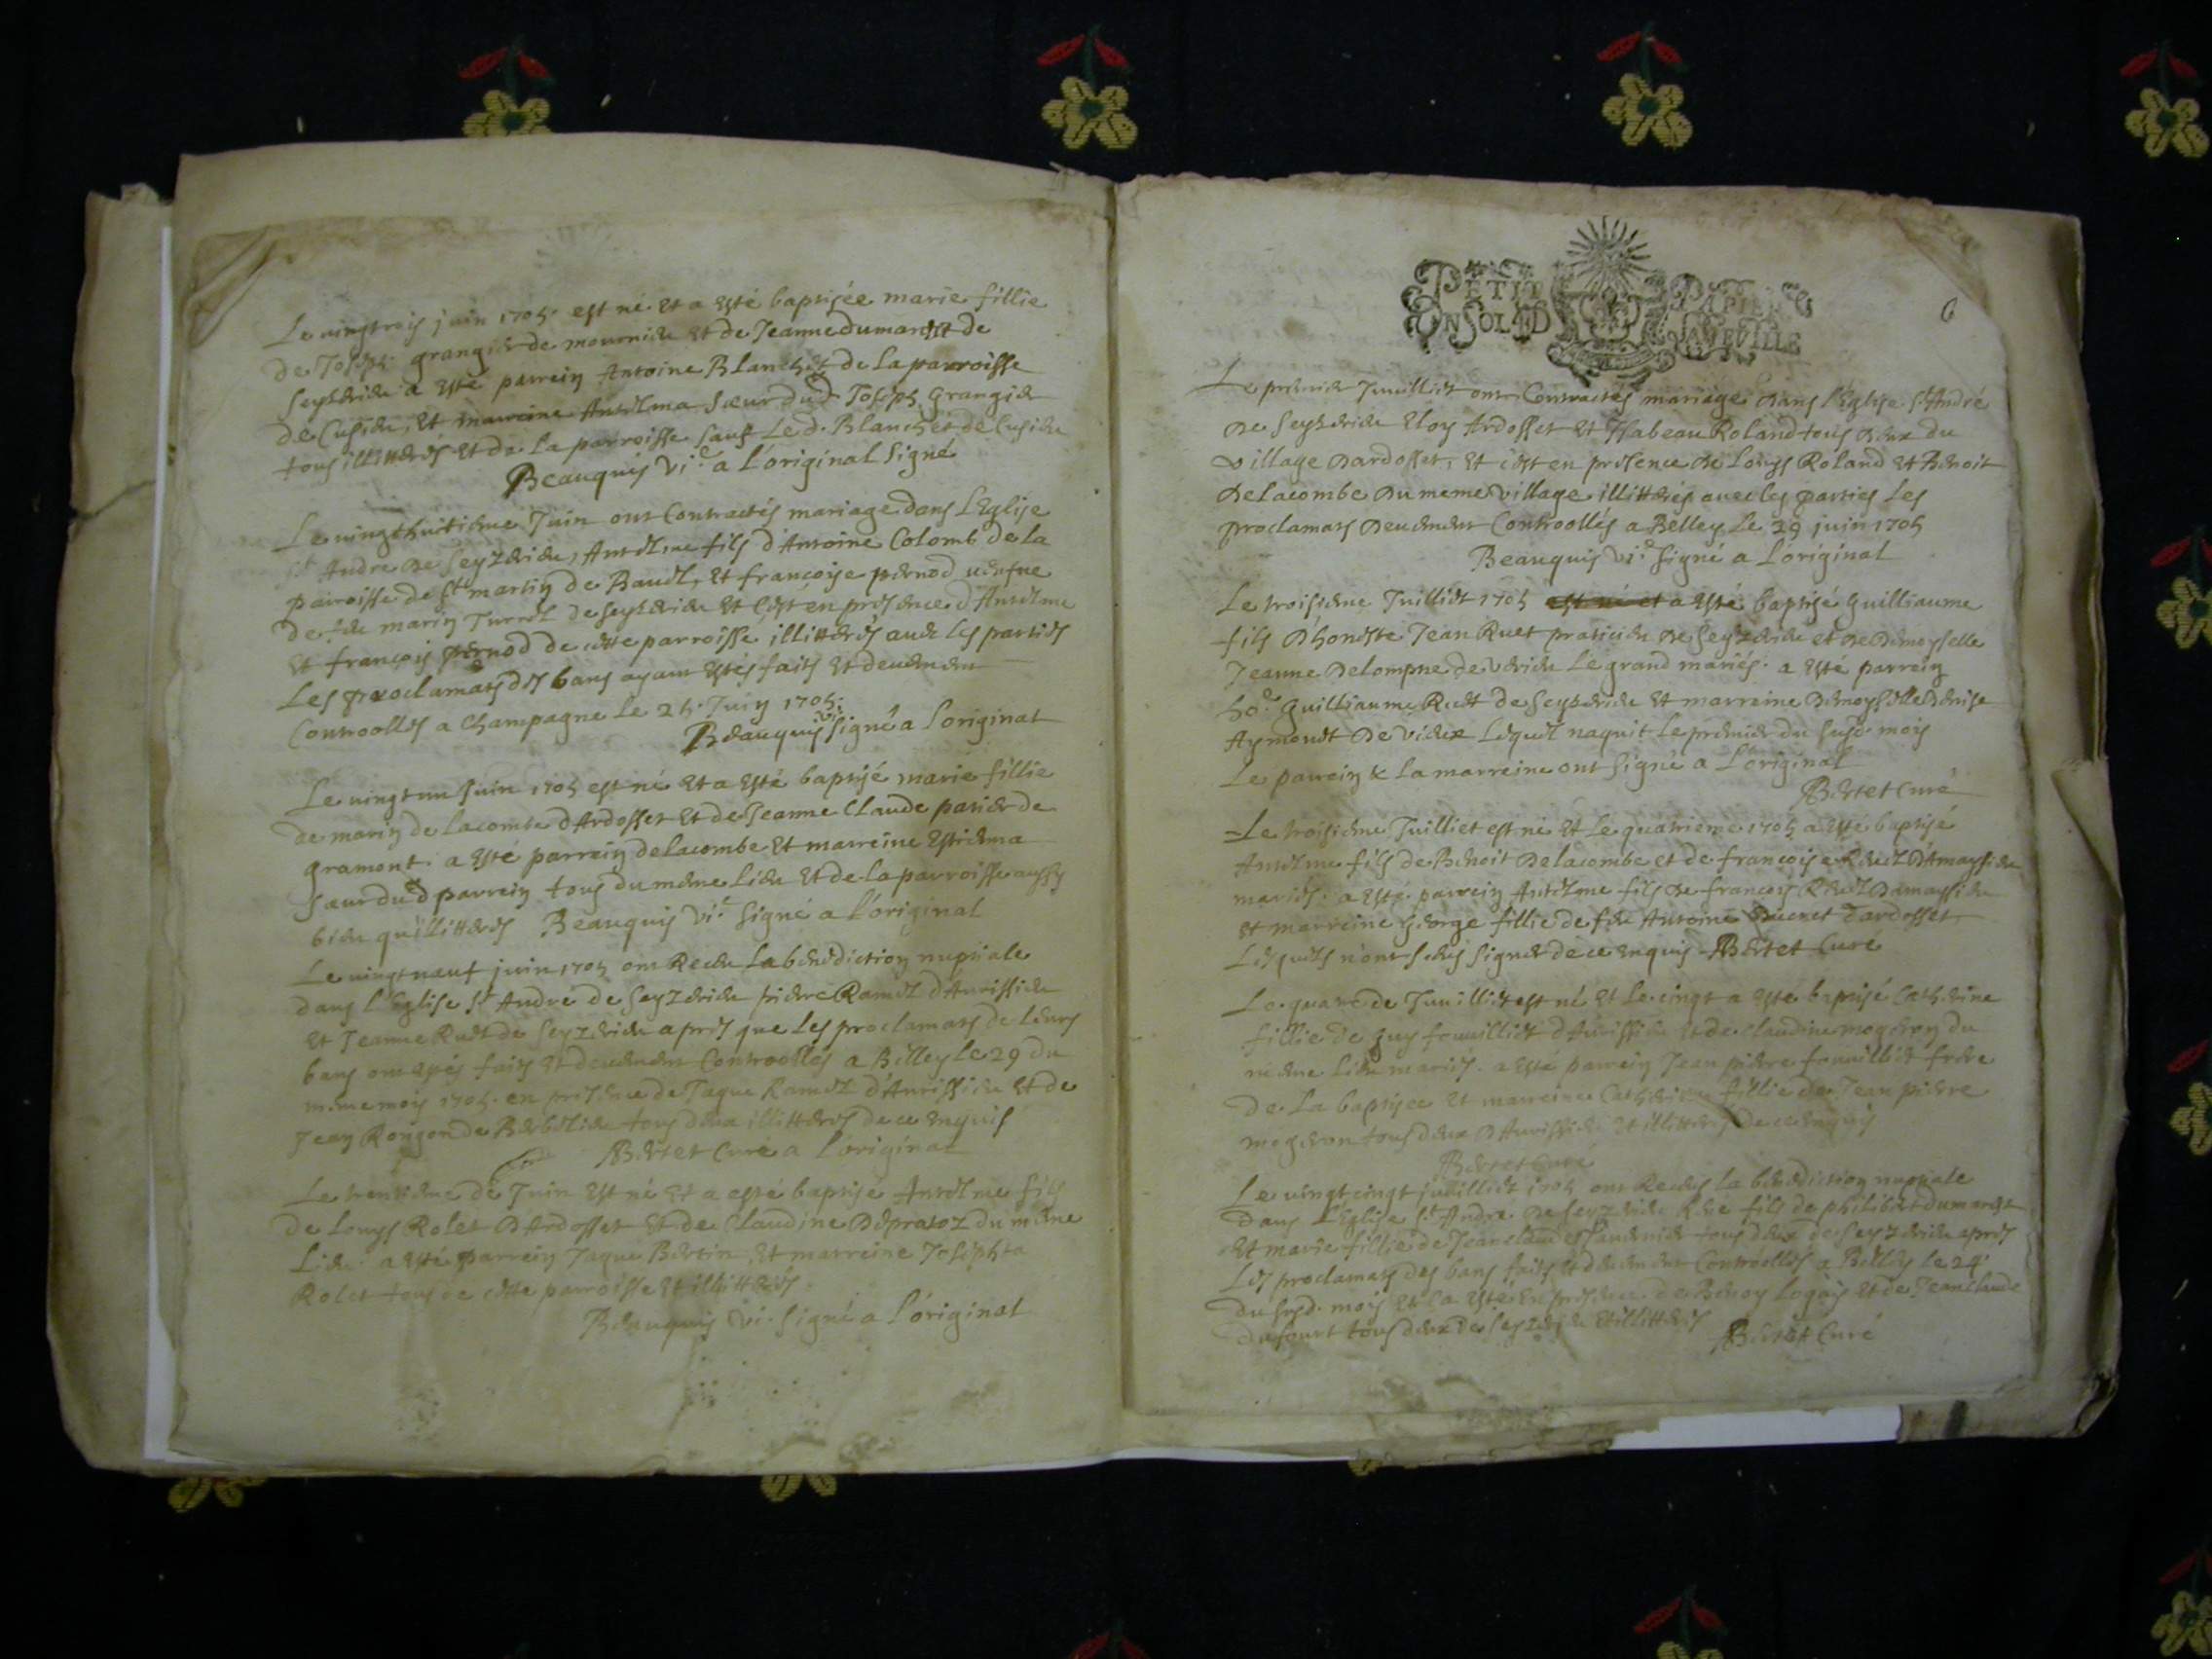 Le vingtrois juin 1705 est né et a esté baptisée marie fillie
de Joseph grangier de mournieu et de Jeanne dumarest de
Seyzerieu a esté parrein Antoine Blanchet de la parroisse
de Cusieu, et marreine Antelma sœur dud. Joseph Grangier
tous illitterés et de la parroisse sauf Le d. Blanchet de Cusieu
Beauquis vi.e a L'original Signé
Le vingthuitieme Juin ont Contractés mariage dans L'Eglise
St Andre de Seyzerieu, Antelme fils d'Antoine Colomb de la
parroisse de St martin de Bauel, et françoise pernod veufue
de feu marin Turrel de Seyzerieu et c'est en presence d'Antelme
et françois pernod de cette parroisse illitterés auec les parties
Les proclamats des bans ayant estés faits et deuement
Controollés a Champagne le 25. Juin 1705.
Beauquis vi. signé a l'original
Le vingt un Juin 1705 est né et a esté baptisé marie fillie
de marin de Lacombe d'Ardosset et de Jeanne Claude parier de
gramont. a esté parrein delacombe et marreine Estiema
sœur dud parrein tous du meme Lieu et de la parroisse aussy
bien qu'illitterés Beauquis vi.e signé a l'original
Le vingt neuf juin 1705 ont Receu La benediction nuptiale
dans l'Eglise St André de Seyzerieu pierre Ramel d'Aurissieu
et Jeanne Ruet de Seyzerieu apres que les proclamats de leurs
bans ont estés faits et deuement Controollés a Belley le 29 du
meme mois 1705. en presence de Jaque Ramel d'Aurissieu et de
Jean Rongon de Berbelieu tous deux illitterés de ce enquis
Bertet Curé a l'original
Le trentieme de Juin est né et a esté baptisé Antelme fils
de Louys Rolet d'Ardosset et de Claudine Depratoz du meme
Lieu a esté parrein Jaque Bertin et marreine Josephta
Rolet tous de cette parroisse et illitterés.
Beauquis vi. signé a l'original
PETIT PAPIER
UN SOL 4D LA FEUILLE
6
Le premier Juuilliet ont Contractés mariage dans l'Eglise St André
de Seyzerieu Eloy Ardosset et Isabeau Roland tous deux du
village dardosset, et c'est en presence de Louys Roland et Benoit
Delacombe du meme village illitterés auec les parties Les
proclamats deuement Controollés a Belley le 39 juin 1705
Beauquis vi.e signé a L'original
Le troisieme Juilliet 1705 est né et a esté baptisé Guilliaume
fils d'honeste Jean Ruet praticien de Seyzerieu et de Demoyselle
Jeanne Delompne de Verieu Le grand mariés. a esté parrein
ho.e Guilliaume Ruet de Seyzerieu et marreine Demoyselle Denise
Aymonet de Vieux Lequel naquit le premier du susd. mois
Le parrein & la marreine ont signé a L'original
Bertet Curé
Le troisieme Juilliet est né et le quatrieme 1705 a esté baptisé
Antelme fils de Benoit Delacombe et de françoise Reuel d'Amaysieu
mariés. a esté parrein Antelme fils de françois Reuel Damaysieu
et marreine George fillie de feu Antoine Ducret dardosset
Lesquels n'ont sceus signer de ce enquis Bertet Curé
Le quatre de Juuilliet est né et le cinqt a esté baptisé Catherine
fillie de Guy fouuilliet d'Aurissieu et de Claudine mogeron du
meme Lieu mariés. a esté parrein Jean pierre fouuilliet frere
de La baptisée et marreine Catherine fillie de Jean pierre
mogeron tous deux d'Aurissieu et illitterés de ce enquis
Bertet Curé
Le vingt cinqt juuilliet 1705 ont Receus la benediction nuptiale
dans L'Eglise St Andre de Seyzerieu fils de philibert dumarest
et marie fillie de Jeanclaude tous deux de Seyzerieu apres
Les proclamats des bans faits et deuement Controollés a Belley le 24
du susd. mois et ce a esté en presence de Benoy Logoy et de Jeanclaude
dufourt tous deux de Seyzerieu et illitterés
Bertet Curé